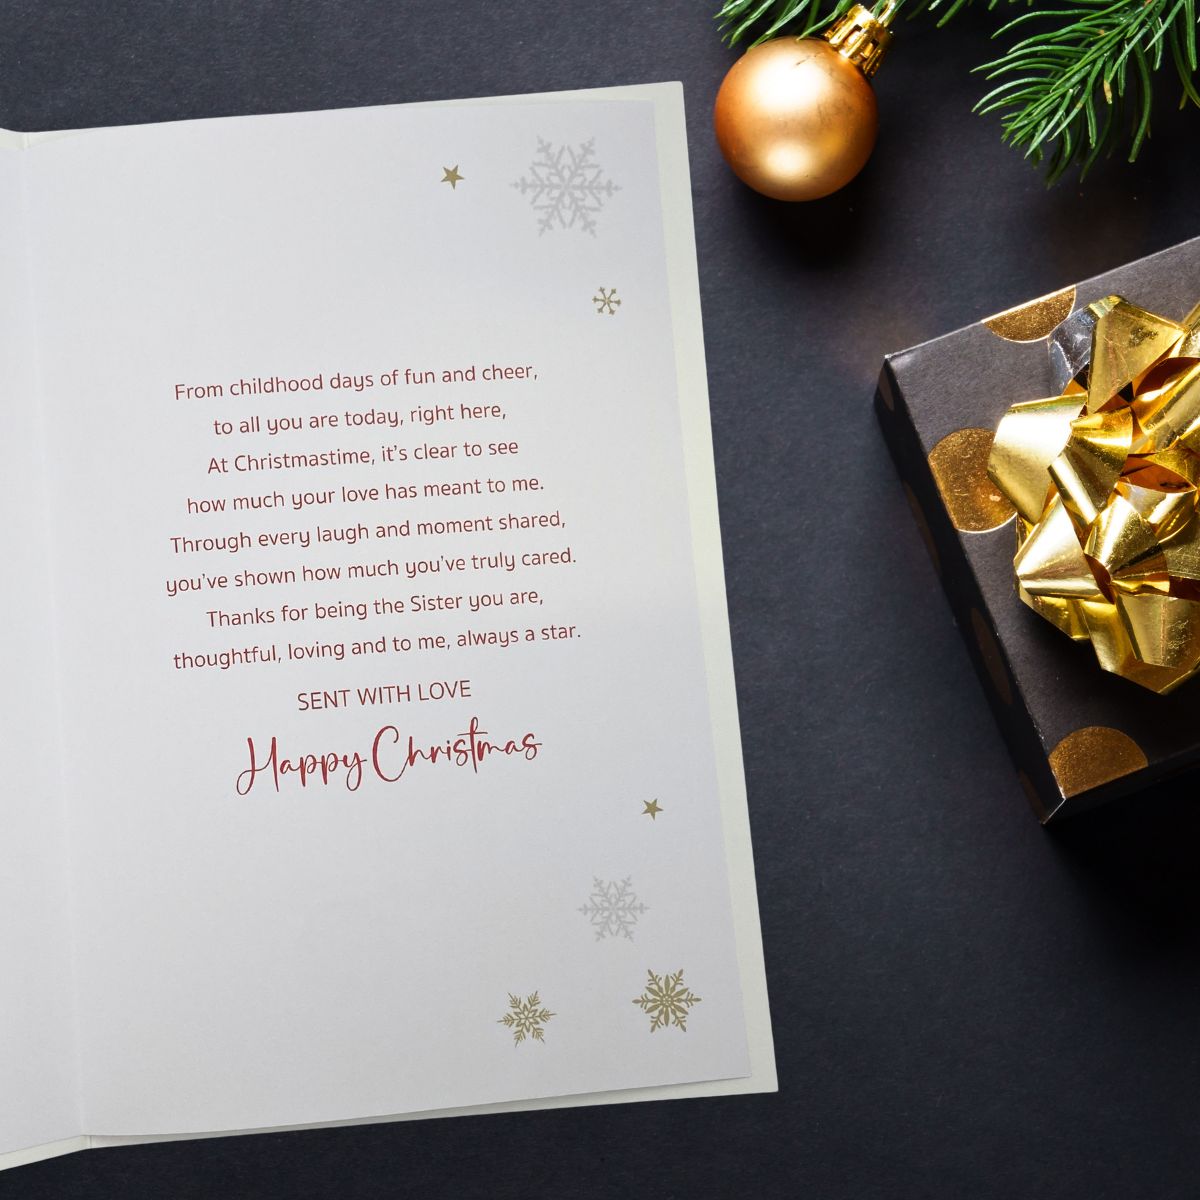 From childhood days of fun and cheer,
to all you are today, right here,
At Christmastime, it's clear to see
how much your love has meant to me.
Through every laugh and moment shared,
you've shown how much you've truly cared.
Thanks for being the Sister you are,
thoughtful, loving and to me, always a star.
SENT WITH LOVE
Happy Christmas